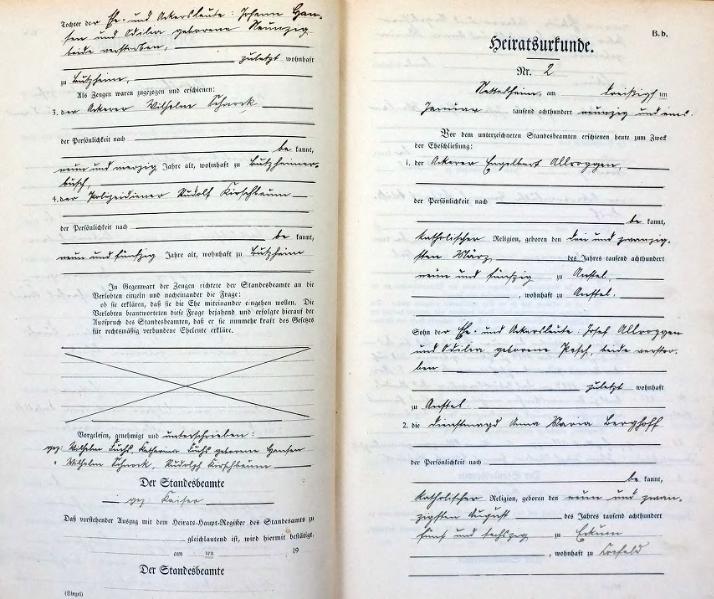 Tochter der Ehe- und Ackersleute: Johann Gan-
sen und Odilia geborene Neunzig
beide verstorben,
zuletzt wohnhaft
zu Butzheim,
Als Zeugen waren zugezogen und erschienen:
3. der Ackerer Wilhelm Schnock
der Persönlichkeit nach
be kannt,
neun und vierzig Jahre alt, wohnhaft zu Butzheimer-
busch,
4. der Polizeidiener Rudolf Kirschbaum
der Persönlichkeit nach
be kannt,
neun und fünfzig Jahre alt, wohnhaft zu Butzheim
In Gegenwart der Zeugen richtete der Standesbeamte an die
Verlobten einzeln und nacheinander die Frage:
ob sie erklären, daß sie die Ehe miteinander eingehen wollen. Die
Verlobten beantworteten diese Frage bejahend und erfolgte hierauf der
Ausspruch des Standesbeamten, daß er sie nunmehr kraft des Gesetzes
für rechtmäßig verbundene Eheleute erkläre.
Vorgelesen, genehmigt und unterschrieben:
gez: Wilhelm Fuchs, Katharina Fuchs geborene Gansen
" Wilhelm Schnock, Rudolf Kirschbaum
Der Standesbeamte
gez Kaiser
Daß vorstehender Auszug mit dem Heirats-Haupt-Register des Standesamts zu
gleichlautend ist, wird hiermit bestätigt.
am ten 19
Der Standesbeamte
(Siegel)
B.b.
Heiratsurkunde.
Nr. 2
Nettesheim, am dreißigsten
Januar tausend achthundert neunzig und eins.
Vor dem unterzeichneten Standesbeamten erschienen heute zum Zweck
der Eheschließung:
1. der Ackerer Engelbert Allroggen,
der Persönlichkeit nach
be kannt,
katholischer Religion, geboren den drei und zwanzig-
sten März, des Jahres tausend achthundert
neun und fünfzig zu Anstel
, wohnhaft zu Anstel.
Sohn der Ehe- und Ackersleute: Josef Allroggen
und Odilia geborene Pesch, beide verstor-
ben
zuletzt wohnhaft
zu Anstel
2. die Dienstmagd Anna Maria Berghoff
der Persönlichkeit nach
be kannt,
katholischer Religion, geboren den neun und zwan-
zigsten August des Jahres tausend achthundert
fünf und sechszig zu Eckum
, wohnhaft zu Crefeld